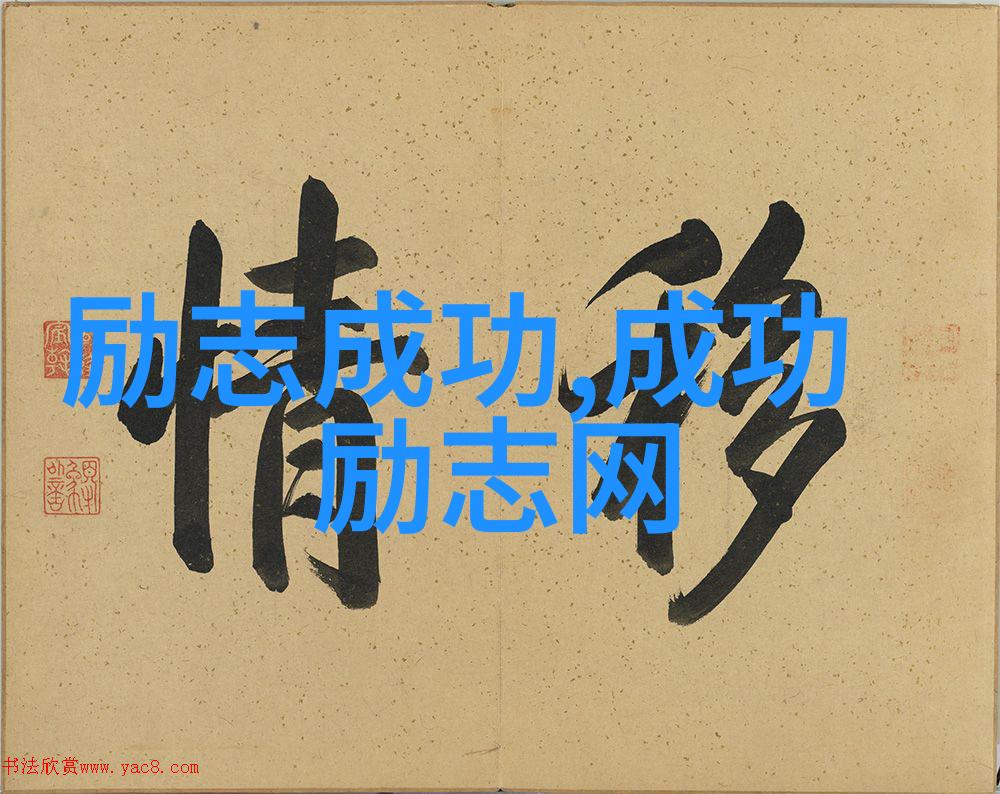 移情
励志成功,成功
励志网
书法欣赏www.yac8.com